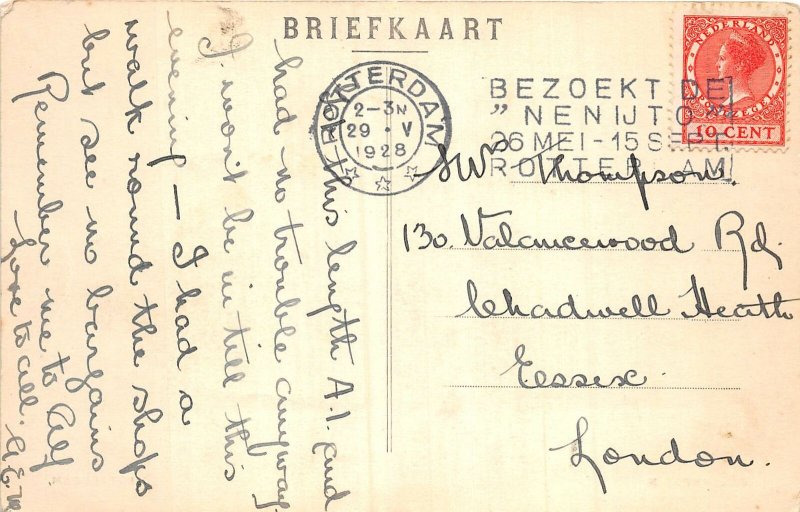 BRIEFKAART
ROTTERDAM
2-3N
29 · V
1928
BEZOEKT DE
„NENIJTO"
26 MEI-15 SEPT.
ROTTERDAM
NEDERLAND
10 CENT
this length A.1. and
had no trouble anyway
I won't be in till this
evening — I had a
walk round the shops
but see no bargains
Remember me to Alf
Love to all.
Thompson.
130. Valancewood Rd.
Chadwell Heath
Essex.
London.